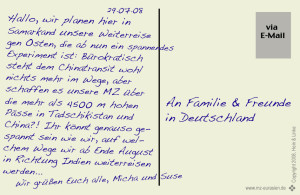 29.07.08
Hallo, wir planen hier in
Samarkand unsere Weiterreise
gen Osten, die ab nun ein spannendes
Experiment ist: Bürokratisch
steht dem Chinatransit wohl
nichts mehr im Wege, aber
schaffen es unsere MZ über
die mehr als 4500 m hohen
Pässe in Tadschikistan und
China?! Ihr könnt genauso ge-
spannt sein wie wir, auf wel-
chem Wege wir ab Ende August
in Richtung Indien weiterreisen
werden...
wir grüßen Euch alle, Micha und Suse
via
E-Mail
An Familie & Freunde
in Deutschland